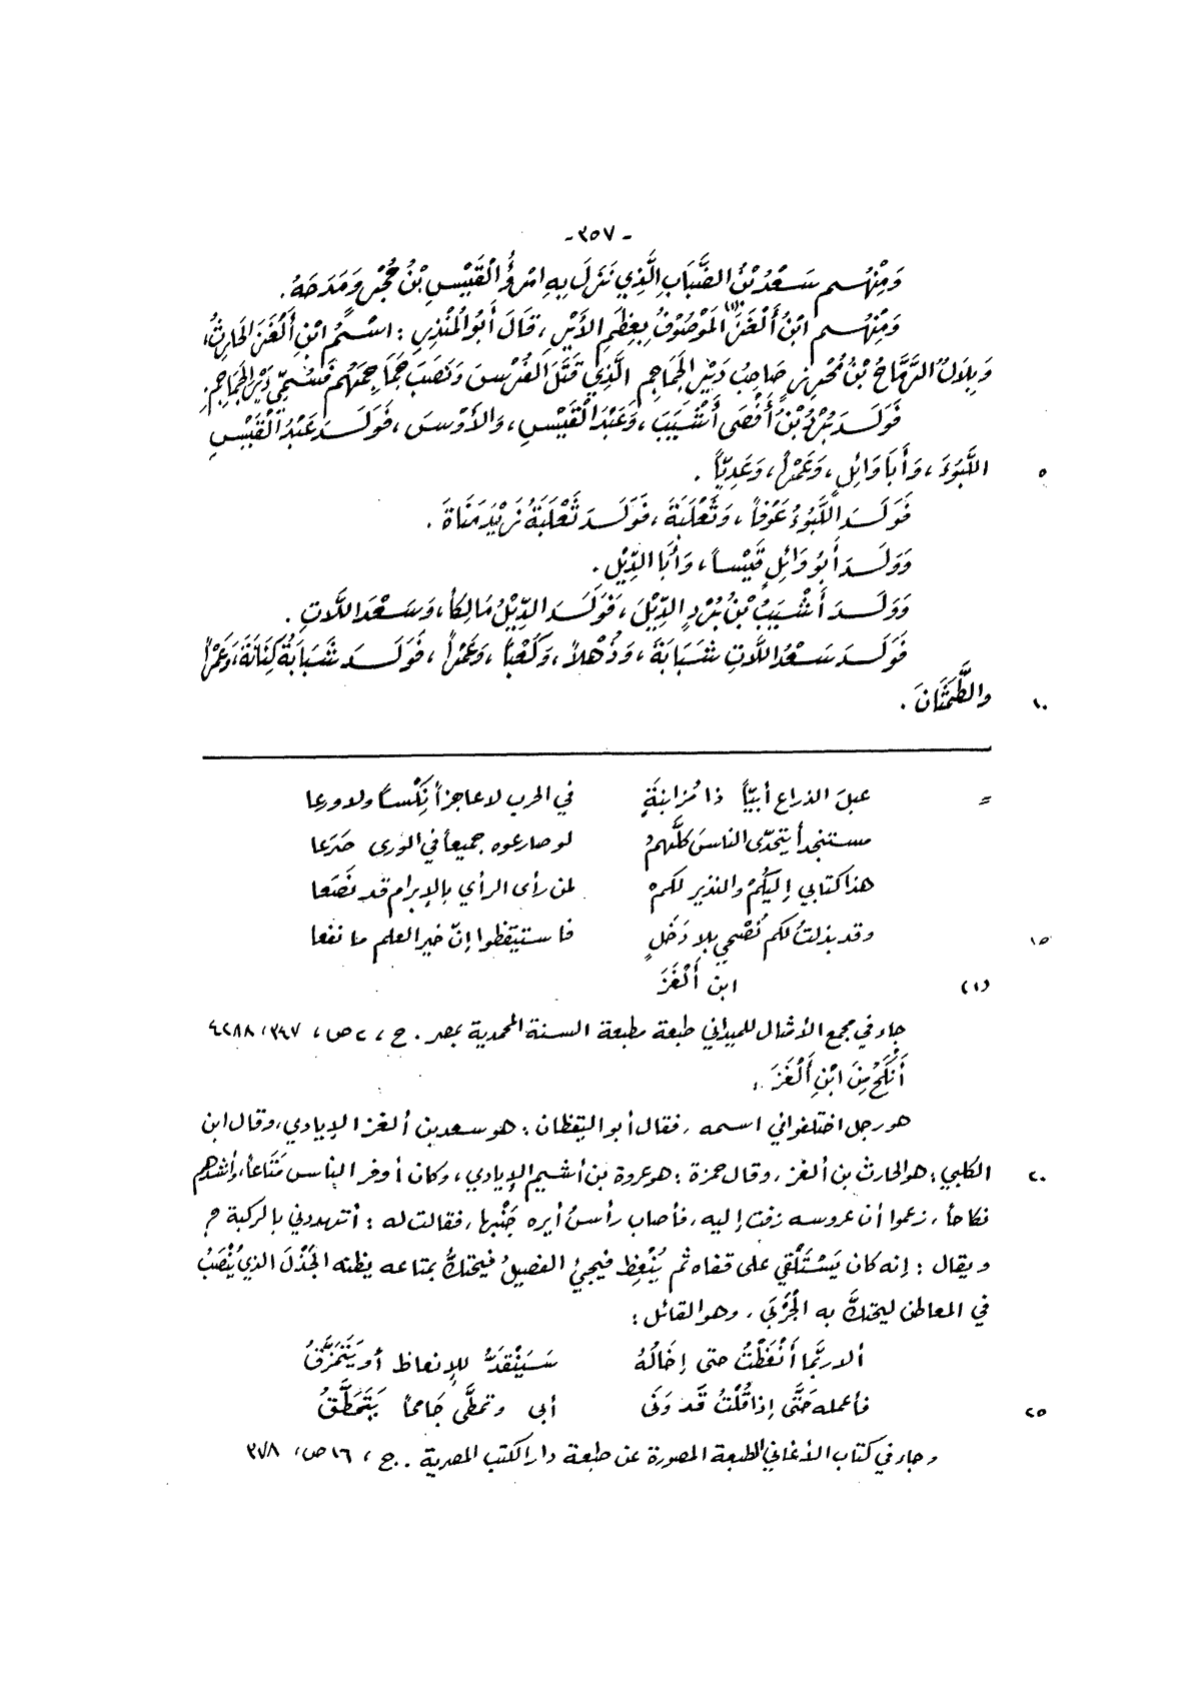 - ٣٥٧ -
وَمِنْهُم سَعْدُ بْنُ الضَّبَابِ الَّذِي نَزَلَ بِهِ امْرُؤُ الْقَيْسِ بْنُ حُجْرٍ وَمَدَحَهُ .
وَمِنْهُم ابْنُ أَلْغَزَ (١) المَوْصُوفُ بِعِظَمِ الأَيْرِ ، قَالَ أَبُو الْمُنْذِرِ : اسْمُ ابْنِ أَلْغَزَ الحَارِثُ ،
وَبِلَالٌ الرَّمَّاحُ بْنُ مُحْرِزٍ صَاحِبُ دَيْرِ الجَمَاجِمِ الَّذِي قَتَلَ الفُرْسَ وَنَصَبَ جَمَاجِمَهُمْ فَسُمِّيَ دَيْرَ الجَمَاجِمِ .
فَوَلَدَ بُرْدُ بْنُ أَفْصَى أَشْيَبَ ، وَعَبْدَ الْقَيْسِ ، وَالأَوْسَ ، فَوَلَدَ عَبْدُ الْقَيْسِ
٥ اللَّبُوءَ ، وَأَبَا وَائِلٍ ، وَعَمْراً ، وَعَدِيّاً .
فَوَلَدَ اللَّبُوءُ عَوْفاً ، وَثَعْلَبَةَ ، فَوَلَدَ ثَعْلَبَةُ زَيْدَ مَنَاةَ .
وَوَلَدَ أَبُو وَائِلٍ قَيْساً ، وَأَبَا الدِّيْلِ .
وَوَلَدَ أَشْيَبُ بْنُ بُرْدٍ الدِّيْلَ ، فَوَلَدَ الدِّيْلُ مَالِكاً ، وَسَعْدَ اللَّاتِ .
فَوَلَدَ سَعْدُ اللَّاتِ شَبَابَةَ ، وَذُهْلاً ، وَكَعْباً ، وَعَمْراً ، فَوَلَدَ شَبَابَةُ كِنَانَةَ ، وَعَمْراً
١٠ والطَّمَثَانَ .
= عبلَ الذراع أبيّاً ذا مُزابنةٍ في الحرب لا عاجزاً نِكْساً ولا ورعا
مستنجداً يتحدّى الناسَ كلَّهمُ لو صارعوه جميعاً في الورى صَرَعا
هذا كتابي إليكُمْ والنذير لكمْ لمن رأى الرأي بالإبرام قد نَصَعا
١٥ وقد بذلتُ لكم نُصْحِي بلا دَخَلٍ فاستيقظوا إنّ خير العلم ما نفعا
(١) ابن أَلْغَزَ
جاء في مجمع الأمثال للميداني طبعة مطبعة السنة المحمدية بمصر . ج ، ٢ ص ، ٣٤٧ ، ٤٢٨٨
أَنْكَحُ مِنَ ابْنِ أَلْغَزَ .
هو رجل اختلفوا في اسمه ، فقال أبو اليقظان : هو سعد بن ألغز الإيادي ، وقال ابن
٢٠ الكلبي : هو الحارث بن ألغز ، وقال حمزة : هو عروة بن أشيم الإيادي ، وكان أوفر الناس مَتَاعاً ، وأشدهم
نكاحاً ، زعموا أن عروسه زفت إليه ، فأصاب رأسُ أيره جَنْبها ، فقالت له : أتهددني بالركبة ؟
ويقال : إنه كان يَسْتَلْقِي على قفاه ثم يُنْعِظ فيجيءُ الفصيلُ فيحتكُّ بمتاعه يظنه الجَذْلَ الذي يُنْصَبُ
في المعاطن ليحتكَّ به الجُرْبَى ، وهو القائل :
ألا ربَّما أَنْعَظْتُ حتى إخَالُهُ سَيَنْقَدُّ للإنعاظ أو يَتَمَزَّقُ
٢٥ فأعمله حَتَّى إذا قُلْتُ قَد وَنَى أبى وتمطَّى جَامحاً يَتَمَطَّقُ
وجاء في كتاب الأغاني الطبعة المصورة عن طبعة دار الكتب المصرية . ج ، ١٦ ص ، ٣٧٨